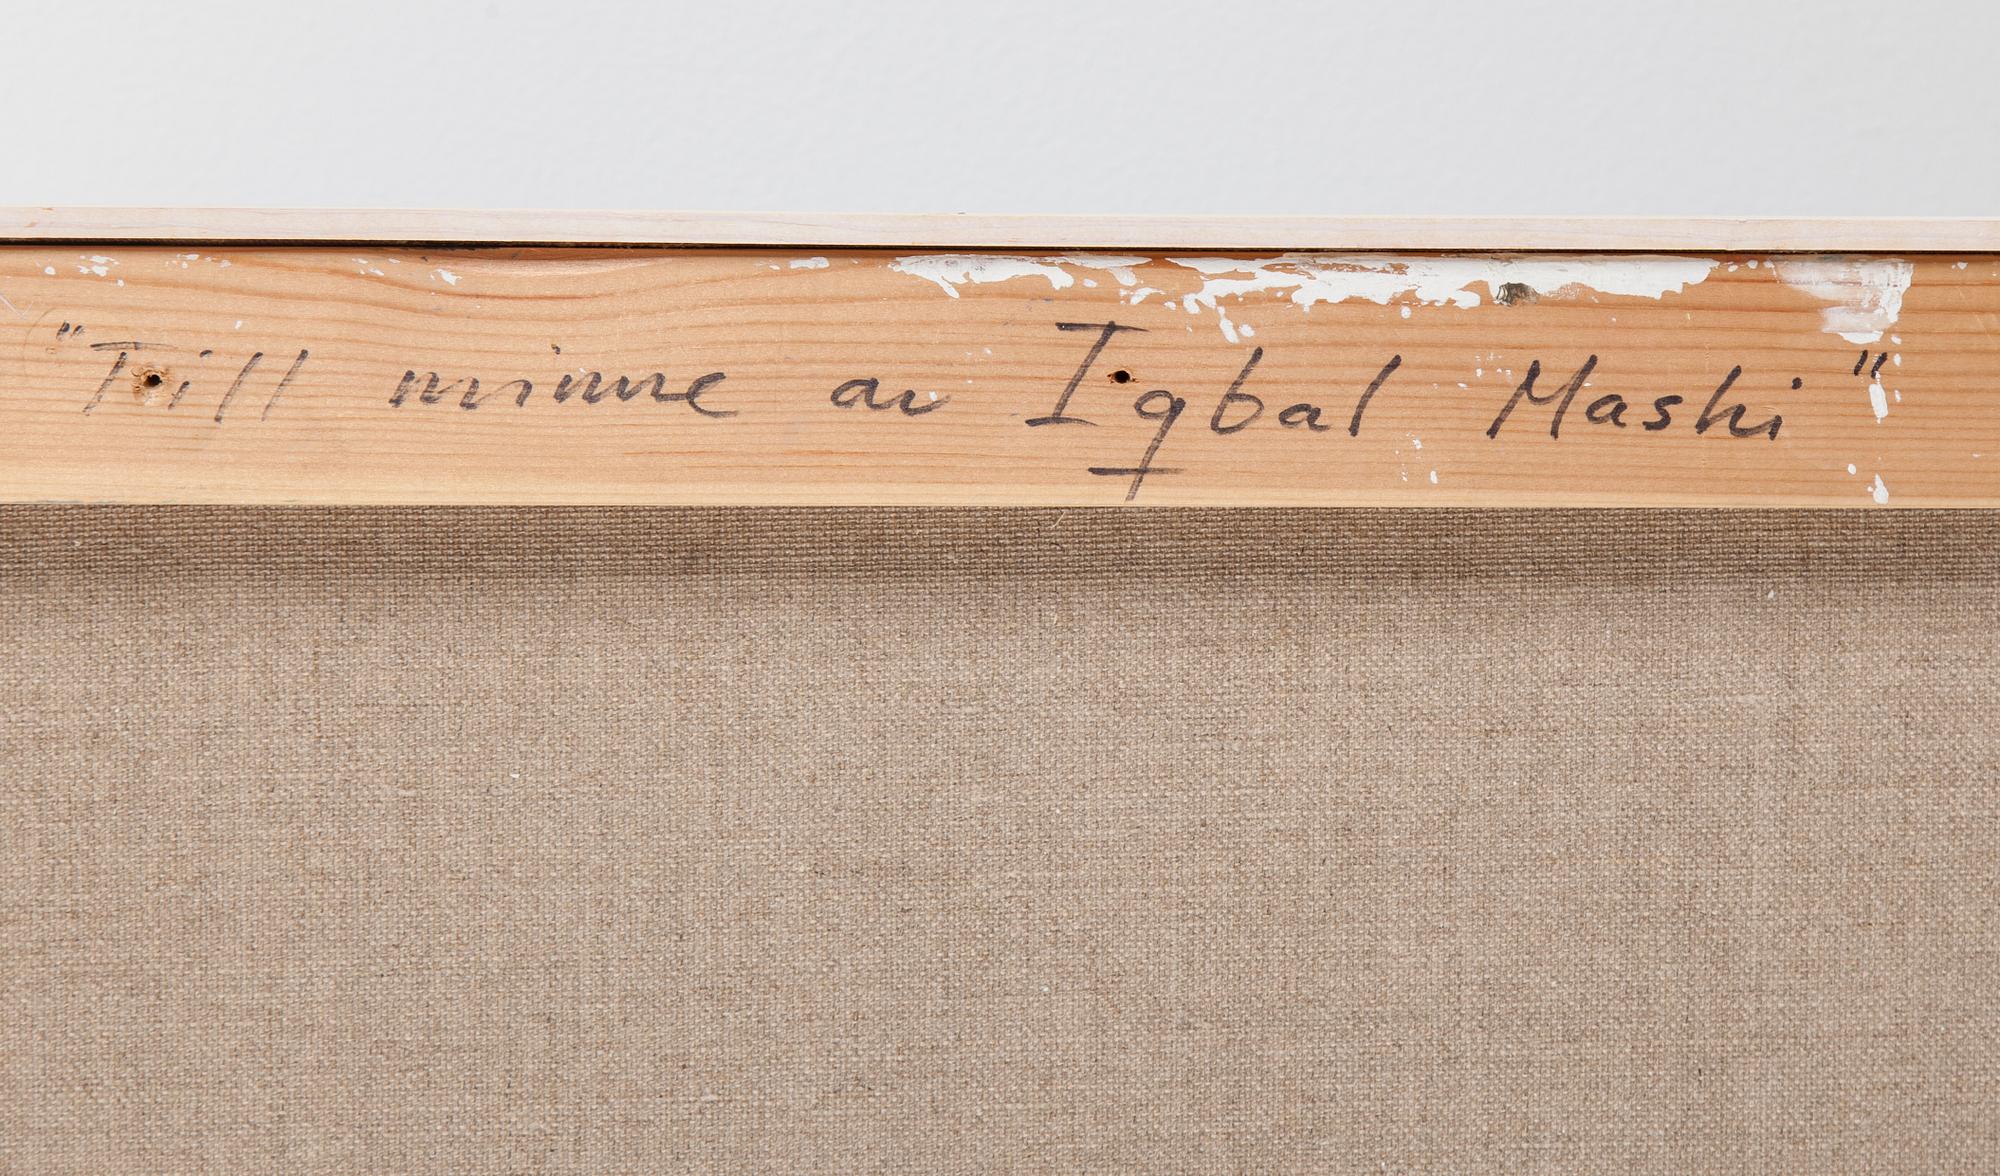 "Till minne av Iqbal Mashi"